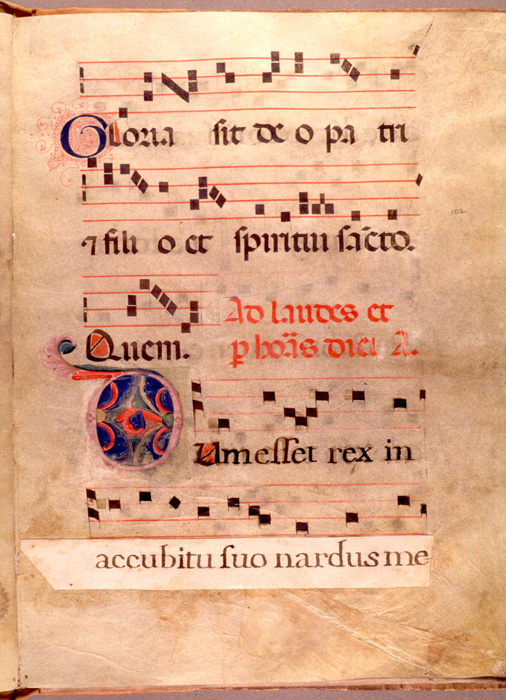 Gloria sit deo pa tri
⁊ fili o et spiritui sācto.
Quem. Ad laudes et
p horās diei A.
Dum esset rex in
accubitu suo nardus me
102